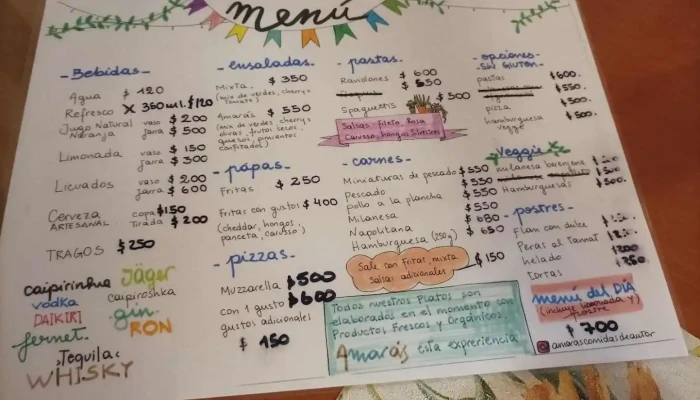 menú
- Bebidas -
Agua $ 120
Refresco X 350 ml. $ 120
Jugo Natural vaso $ 200
Naranja jarra $ 500
Limonada vaso $ 150
jarra $ 300
Licuados vaso $ 200
jarra $ 600
Cerveza copa $ 150
ARTESANAL Tirada $ 200
TRAGOS $ 250
caipirinha Jäger
vodka caipiroshka
DAIKIRI gin
fernet. RON
Tequila
WHISKY
- ensaladas -
Mixta $ 350
(mix de verdes, cherrys
tomate)
Amarás $ 550
(mix de verdes, cherrys
olivas, frutos secos,
quesos, pimientos
confitados)
- papas -
Fritas $ 250
Fritas con gustos $ 400
(cheddar, hongos,
panceta, caruso)
- pizzas -
Muzzarella $ 500
con 1 gusto $ 600
gustos adicionales
$ 150
- pastas -
Raviolones $ 600
$ 550
Spaguettis $ 500
Salsas - Fileto, Rosa
Carusso, hongos Silvestres
- carnes -
Miniaturas de pescado $ 550
Pescado $ 550
pollo a la plancha $ 550
Milanesa $ 550
Napolitana $ 680
Hamburguesa (250g) $ 650
Sale con Fritas, mixta
Salsas adicionales $ 150
Todos nuestros Platos son
elaborados en el momento con
Productos Frescos y Orgánicos.
Amarás esta experiencia
- opciones -
- SIN GLUTEN -
pastas $ 600.
$ 550.
pizza $ 500.
hamburguesa $ 500.
veggie
Veggie
milanesa berenjena
Hamburguesas $ 500.
- postres -
Flan con dulce
Peras al Tannat
helado $ 200
tortas $ 250
menú del DÍA
(incluye limonada y
postre
$ 700
amarascomidasdeautor